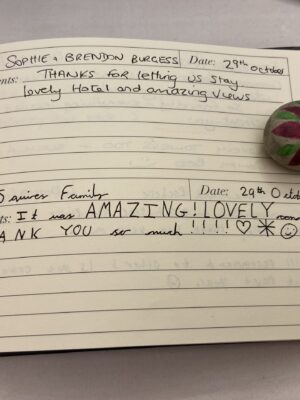 SOPHIE + BRENDON BURGESS Date: 29th October
ents: THANKS FOR letting US Stay
lovely Hotel and amazing views
Family Date: 29th Octob
ts: It was AMAZING! LOVELY room
ANK YOU so much !!!! ♡ ☺